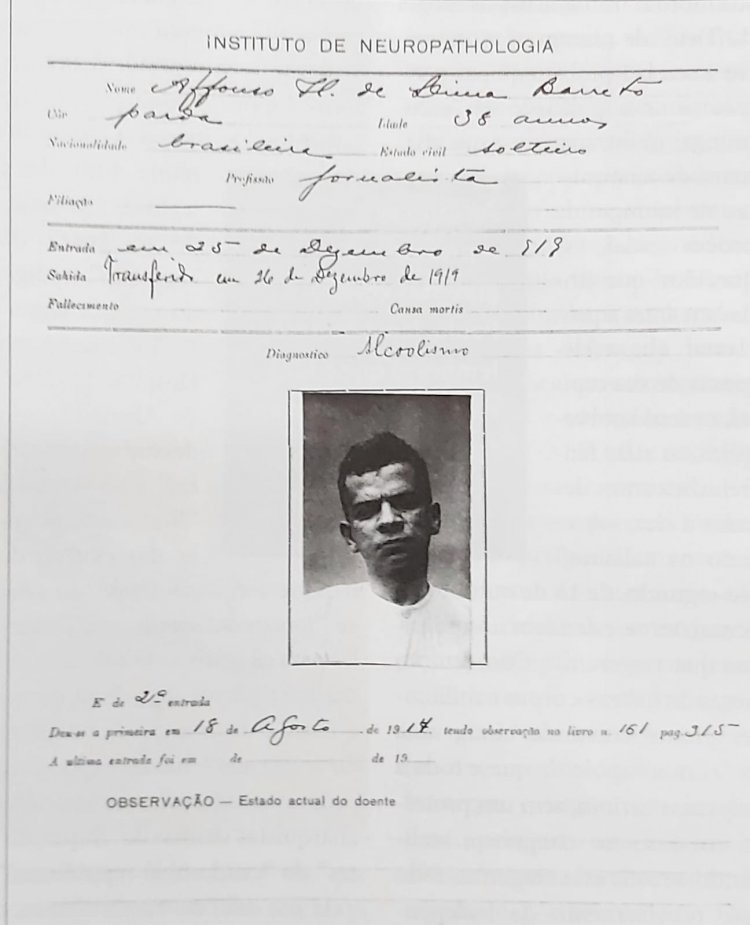 INSTITUTO DE NEUROPATHOLOGIA
Nome Affonso H. de Lima Barreto
Côr parda Idade 38 annos
Nacionalidade brasileira Estado civil solteiro
Profissão jornalista
Filiação
Entrada em 25 de Dezembro de 919
Sahida Transferido em 26 de Dezembro de 1919
Fallecimento Causa mortis
Diagnostico Alcoolismo
E' de 2ª entrada
Deu-se a primeira em 18 de Agosto de 1914 tendo observação no livro n. 161 pag. 315
A ultima entrada foi em de de 19
OBSERVAÇÃO — Estado actual do doente